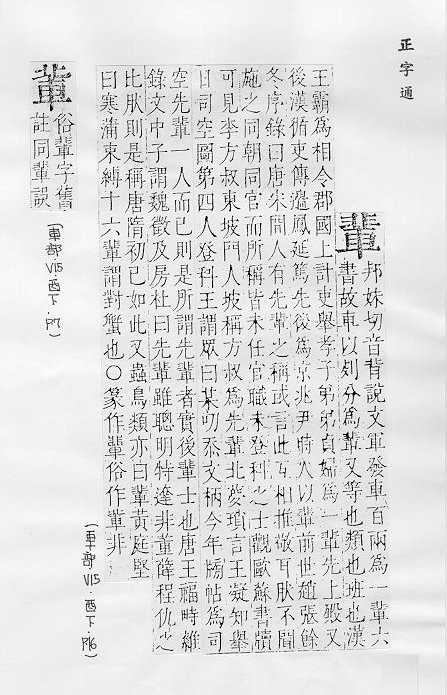 正字通
輩
邦妹切音背說文軍發車百兩爲一輩六
書故車以列分爲輩又等也類也班也漢
王霸爲相令郡國上計吏舉孝子弟弟貞婦爲一輩先上殿又
後漢循吏傳邊鳳延篤先後爲京兆尹時人以輩前世趙張餘
冬序錄曰唐宋間人有先輩之稱或言此互相推敬耳肰不聞
施之同朝同官而所稱皆未任官職未登科之士觀歐蘇書牘
可見李方叔東坡門人坡稱方叔爲先輩北夢瑣言王凝知舉
日司空圖第四人登科王謂眾曰某叨忝文柄今年牓帖爲司
空先輩一人而已則是所謂先輩者實後輩士也唐王福畤維
錄文中子謂魏徵及房杜曰先輩雖聰明特達非董薛程仇之
比肰則是稱唐隋初已如此又蟲鳥類亦曰輩黃庭堅
曰寒蒲束縛十六輩謂對蟹也○篆作輩俗作軰非
(車部 V15.酉下.P16)
軰
俗輩字舊
註同輩誤
(車部 V15.酉下.P7)